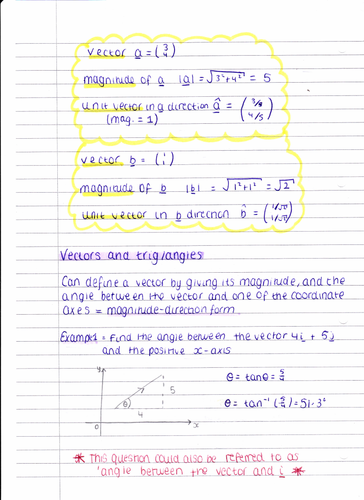 vector a = (3 4)
magnitude of a |a| = √3²+4² = 5
unit vector in a direction â = (3/5 4/5)
(mag. = 1)
vector b = (1 1)
magnitude of b |b| = √1²+1² = √2
unit vector in b direction b̂ = (1/√2 1/√2)
Vectors and trig/angles
Can define a vector by giving its magnitude, and the
angle between the vector and one of the coordinate
axes = magnitude-direction form.
Example = Find the angle between the vector 4i + 5j
and the positive x-axis
y
θ
4
5
x
0
θ = tanθ = 5/4
θ = tan⁻¹ (5/4) = 51.3°
* This question could also be referred to as
'angle between the vector and i *